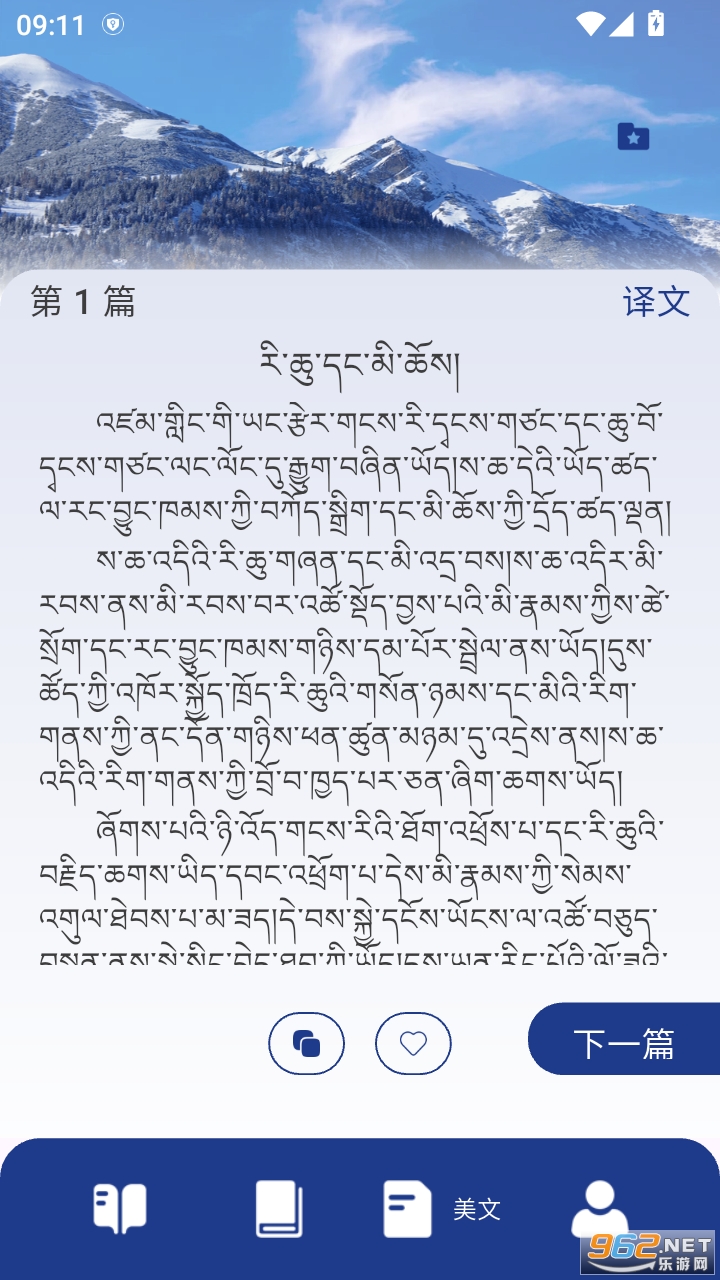 09:11
第 1 篇
译文
རི་ཆུ་དང་མི་ཆོས།
འཛམ་གླིང་གི་ཡང་རྩེར་གངས་རི་དྭངས་གཙང་དང་ཆུ་བོ་
དྭངས་གཙང་ལང་ལོང་དུ་རྒྱུག་བཞིན་ཡོད།ས་ཆ་དེའི་ཡོད་ཚད་
ལ་རང་བྱུང་ཁམས་ཀྱི་བཀོད་སྒྲིག་དང་མི་ཆོས་ཀྱི་དྲོད་ཚད་ལྡན།
ས་ཆ་འདིའི་རི་ཆུ་གཞན་དང་མི་འདྲ་བས།ས་ཆ་འདིར་མི་
རབས་ནས་མི་རབས་བར་འཚོ་སྡོད་བྱས་པའི་མི་རྣམས་ཀྱིས་ཚེ་
སྲོག་དང་རང་བྱུང་ཁམས་གཉིས་དམ་པོར་སྦྲེལ་ནས་ཡོད།དུས་
ཚོད་ཀྱི་འཁོར་སྐྱོད་ཁྲོད་རི་ཆུའི་གསོན་ཉམས་དང་མིའི་རིག་
གནས་ཀྱི་ནང་དོན་གཉིས་ཕན་ཚུན་མཉམ་དུ་འདྲེས་ནས།ས་ཆ་
འདིའི་རིག་གནས་ཀྱི་བྲོ་བ་ཁྱད་པར་ཅན་ཞིག་ཆགས་ཡོད།
ཞོགས་པའི་ཉི་འོད་གངས་རིའི་ཐོག་འཕྲོས་པ་དང་རི་ཆུའི་
བརྗིད་ཆགས་ཡིད་དབང་འཕྲོག་པ་དེས་མི་རྣམས་ཀྱི་སེམས་
འགུལ་ཐེབས་པ་མ་ཟད།དེ་བས་སྐྱེ་དངོས་ཡོངས་ལ་འཚོ་བཅུད་
下一篇
美文
962.NET
乐游网